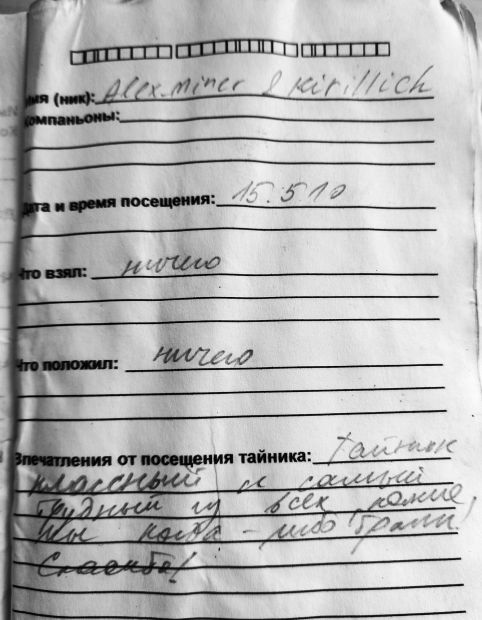 Имя (ник): Alex.miner & Kirillich
Компаньоны:
Дата и время посещения: 15.5.10
Что взял: ничего
Что положил: ничего
Впечатления от посещения тайника: Тайник
классный и самый
трудный из всех, какие
мы когда-либо брали!
Спасибо!